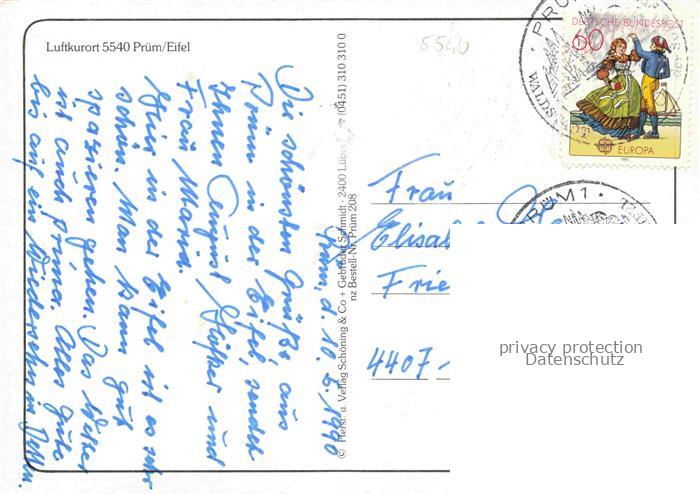 Luftkurort 5540 Prüm/Eifel
5540
Prüm, d. 10. 5. 1990
Die schönsten Grüße aus
Prüm in der Eifel, sendet
Ihnen August und
Frau Maria.
Hier in der Eifel ist es sehr
schön. Man kann gut
spazieren gehen. Das Wetter
ist auch prima. Alles Gute
bis auf ein Wiedersehn in
© Herst. u. Verlag Schöning & Co + Gebrüder Schmidt · 2400 Lübeck (0451) 310 310 0
nz Bestell-Nr. Prüm 208
DEUTSCHE BUNDESPOST
60
EUROPA
1981
PRÜM
WALDSTADT
PRÜM 1
Frau
Elisab
Frie
4407
privacy protection
Datenschutz